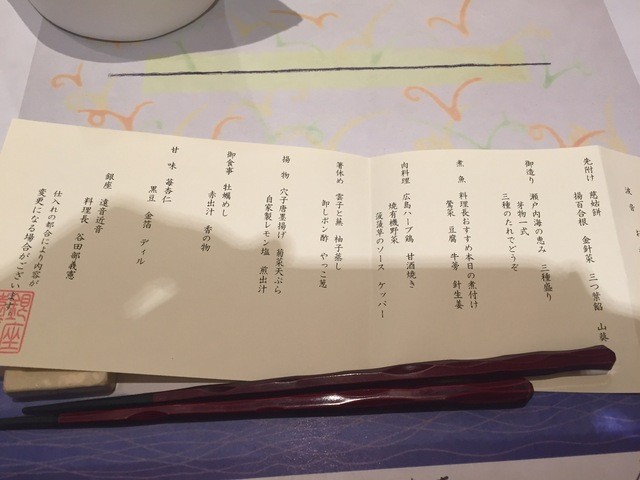 先附け 慈姑餅 金針菜 三つ葉餡 山葵
揚百合根
御造り 瀬戸内海の恵み 三種盛り
芽物一式
三種のたれでどうぞ
煮魚 料理長おすすめ本日の煮付け
鶯菜 豆腐 牛蒡 針生姜
肉料理 広島ハーブ鶏 甘酒焼き
焼有機野菜
菠薐草のソース ケッパー
箸休め 雲子と蕪 柚子蒸し
卸しポン酢 やっこ葱
揚物 穴子唐墨揚げ 菊菜天ぷら
自家製レモン塩 煎出汁
御食事 牡蠣めし
赤出汁 香の物
甘味 苺杏仁
黒豆 金箔 ディル
銀座 遠音近音
料理長 谷田部義憲
仕入れの都合により内容が
変更になる場合がござい